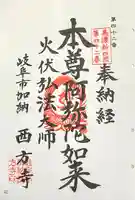 第四十二番
奉納経
本尊阿弥陀如来
火伏弘法大師
岐阜市加納
西方寺